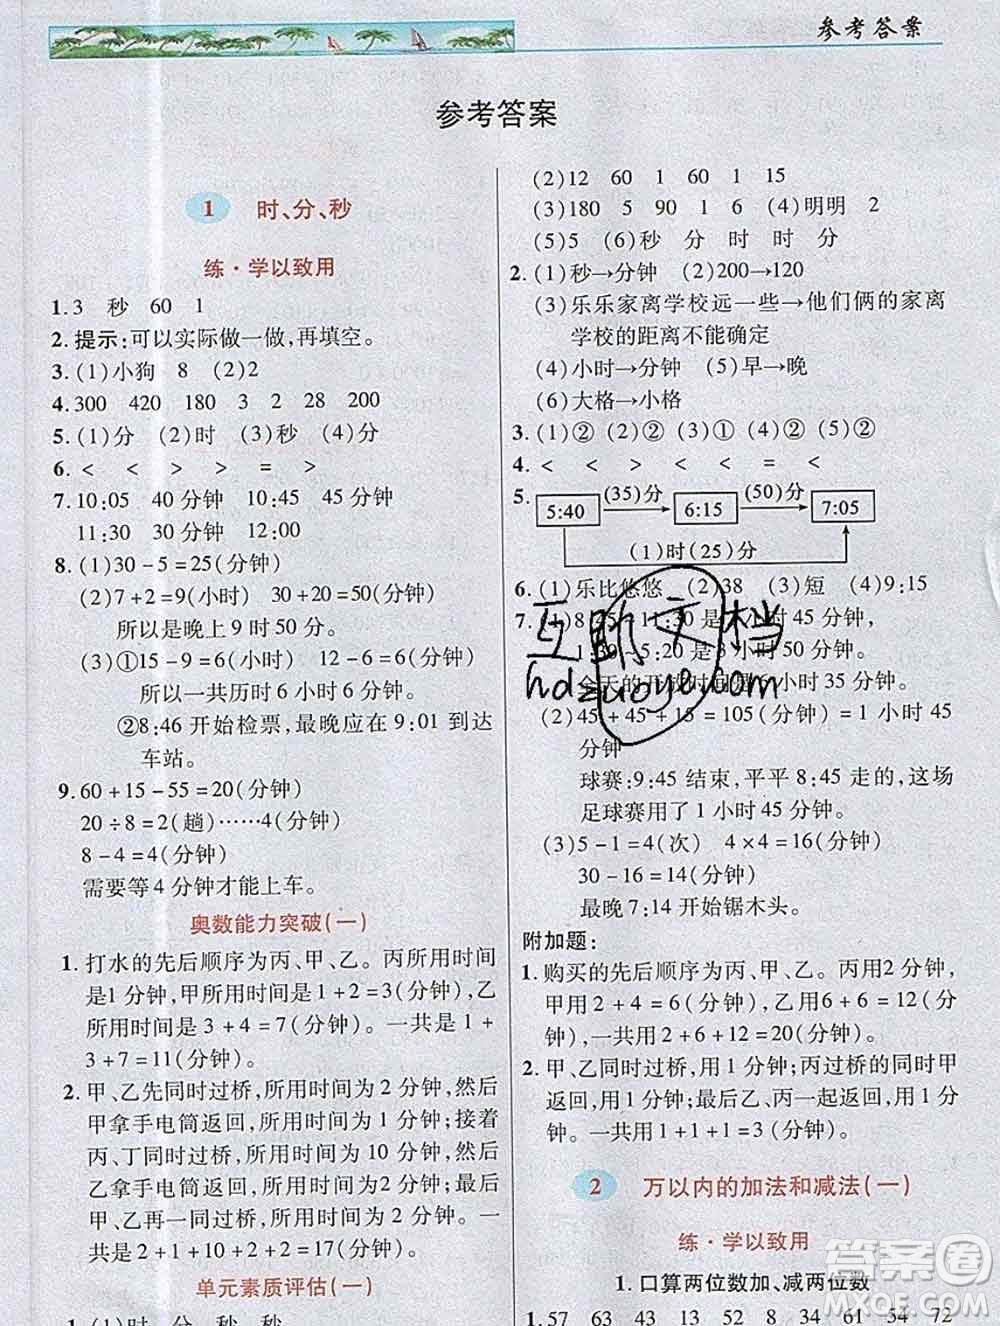 参考答案
参考答案
1 时、分、秒
练·学以致用
1.3 秒 60 1
2.提示:可以实际做一做,再填空。
3.(1)小狗 8 (2)2
4.300 420 180 3 2 28 200
5.(1)分 (2)时 (3)秒 (4)分
6.< < > > = >
7.10:05 40 分钟 10:45 45 分钟
11:30 30 分钟 12:00
8.(1)30-5=25(分钟)
(2)7+2=9(小时) 30+20=50(分钟)
所以是晚上 9 时 50 分。
(3)①15-9=6(小时) 46-40=6(分钟)
所以一共历时 6 小时 6 分钟。
②8:46 开始检票,最晚应在 9:01 到达
车站。
9.60+15-55=20(分钟)
20÷8=2(趟)……4(分钟)
8-4=4(分钟)
需要等 4 分钟才能上车。
奥数能力突破(一)
1.打水的先后顺序为丙、甲、乙。丙所用时间
是1分钟,甲所用时间是1+2=3(分钟),乙
所用时间是 3+4=7(分钟)。一共是 1+
3+7=11(分钟)。
2.甲、乙先同时过桥,所用时间为 2 分钟,然后
甲拿手电筒返回,所用时间为 1 分钟;接着
丙、丁同时过桥,所用时间为 10 分钟,然后
乙拿手电筒返回,所用时间为 2 分钟;最后
甲、乙再一同过桥,所用时间为 2 分钟。一共
是 2+1+10+2+2=17(分钟)。
单元素质评估(一)
1.(1)时 分 秒 秒
(2)12 60 1 60 1 15
(3)180 5 90 1 6 (4)明明 2
(5)5 (6)秒 分 时 时 分
2.(1)秒→分钟 (2)200→120
(3)乐乐家离学校远一些→他们俩的家离
学校的距离不能确定
(4)小时→分钟 (5)早→晚
(6)大格→小格
3.(1)② (2)② (3)① (4)② (5)②
4.< < < > = >
5. 5:40 (35)分 6:15 (50)分 7:05
(1)时(25)分
6.(1)乐比悠悠 (2)38 (3)短 (4)9:15
7.(1)8:25-11:30 是 3 小时 5 分钟。
1:30-5:20 是 3 小时 50 分钟。
全天的开放时间是 6 小时 35 分钟。
(2)45+45+15=105(分钟)=1 小时 45
分钟
球赛:9:45 结束,平平 8:45 走的,这场
足球赛用了 1 小时 45 分钟。
(3)5-1=4(次) 4×4=16(分钟)
30-16=14(分钟)
最晚7:14 开始锯木头。
附加题:
1.购买的先后顺序为丙、甲、乙。丙用2分钟,
甲用 2+4=6(分钟),乙用 6+6=12(分
钟),一共用 2+6+12=20(分钟)。
2.甲、乙同时过桥,用 1 分钟;丙过桥的同时甲
返回,用 1 分钟;最后乙、丙一起返回,用 1 分
钟。一共用 1+1+1=3(分钟)。
2 万以内的加法和减法(一)
练·学以致用
1.口算两位数加、减两位数
1.57 63 43 13 52 8 34 61 54 72
互助文档
hdzuoye.com
答案圈
MXQE.COM